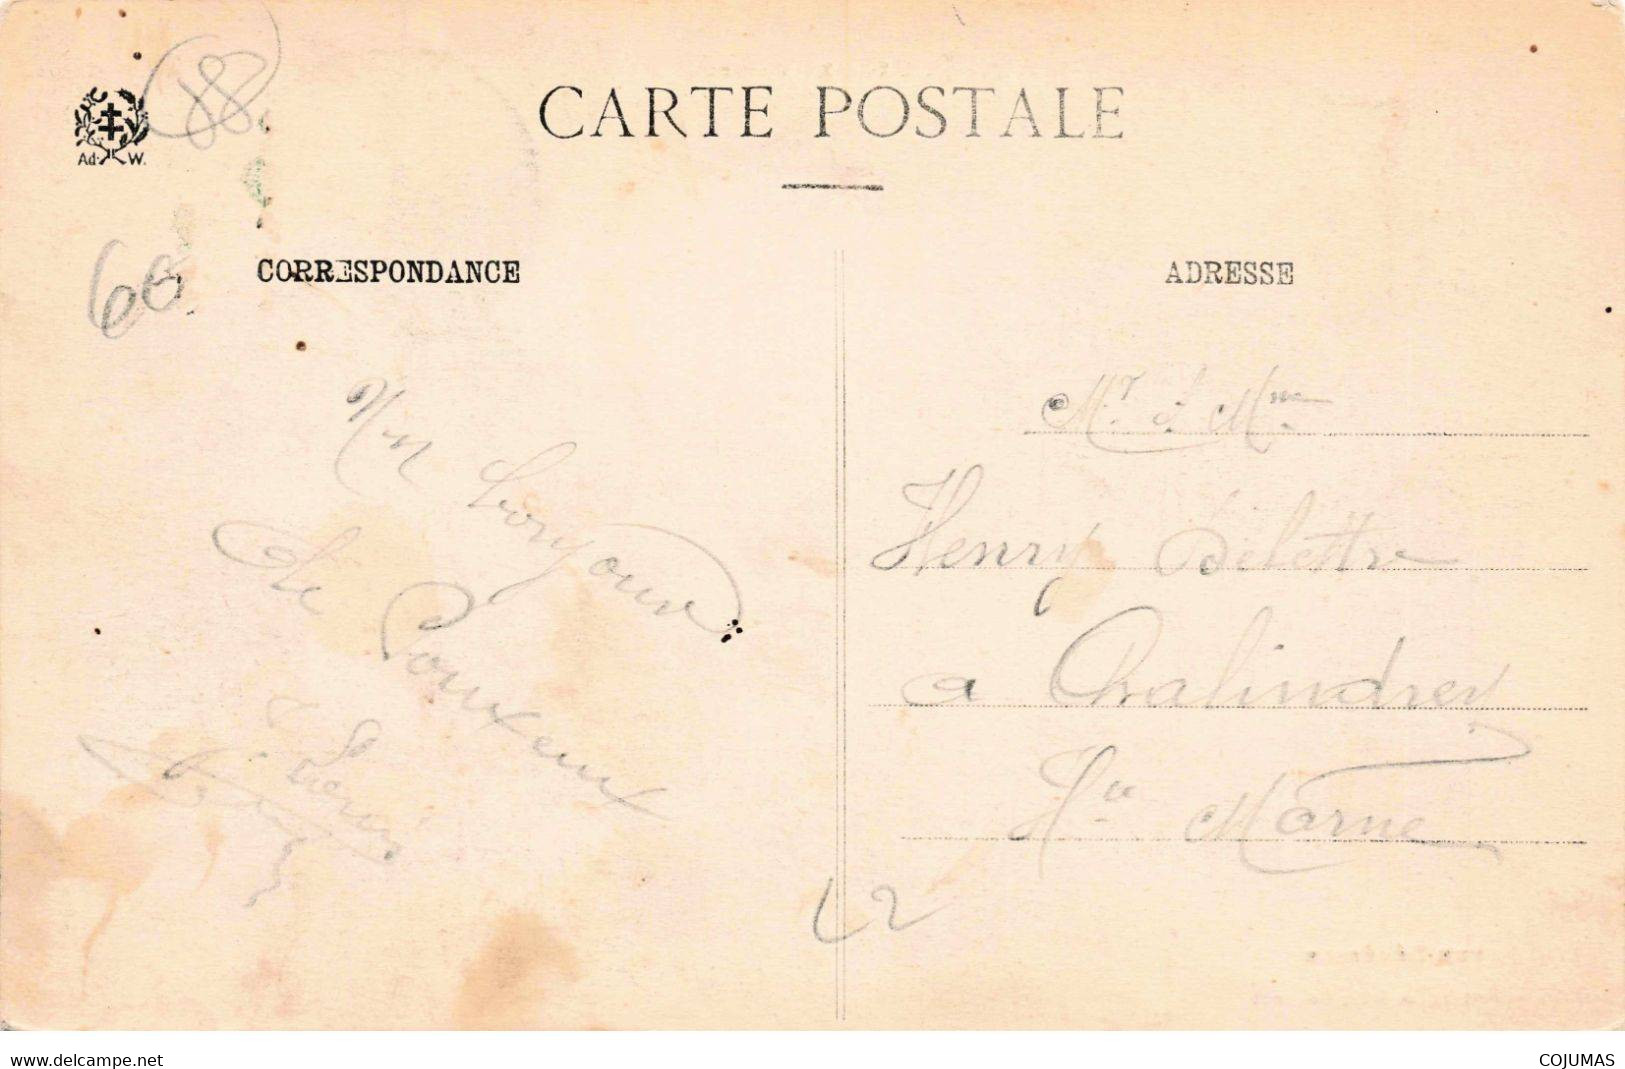 88
CARTE POSTALE
Ad. W.
60
CORRESPONDANCE
ADRESSE
Un bonjour
de Pouxeux
Mr & Mme
Henry Delettre
a Chalindrey
Hte Marne
L2
www.delcampe.net
COJUMAS